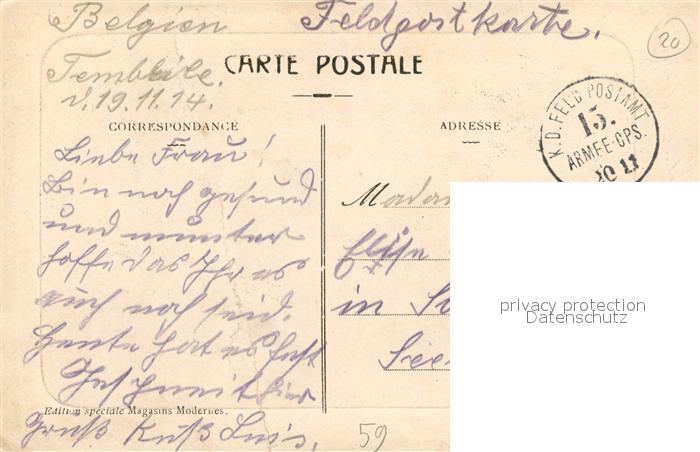 Belgien Feldpostkarte.
20
CARTE POSTALE
v. 19.11.14.
CORRESPONDANCE
ADRESSE
K.D. FELD POSTAMT
15.
ARMEE-CPS.
20 11
Liebe Frau!
Bin noch gesund
und munter
hoffe das Ihr es
auch noch seid.
Heute hat es fast
Geschneit hier
Gruß Kuß Luis.
Madam
Elise
in
See
Edition spéciale Magasins Modernes.
59
privacy protection
Datenschutz